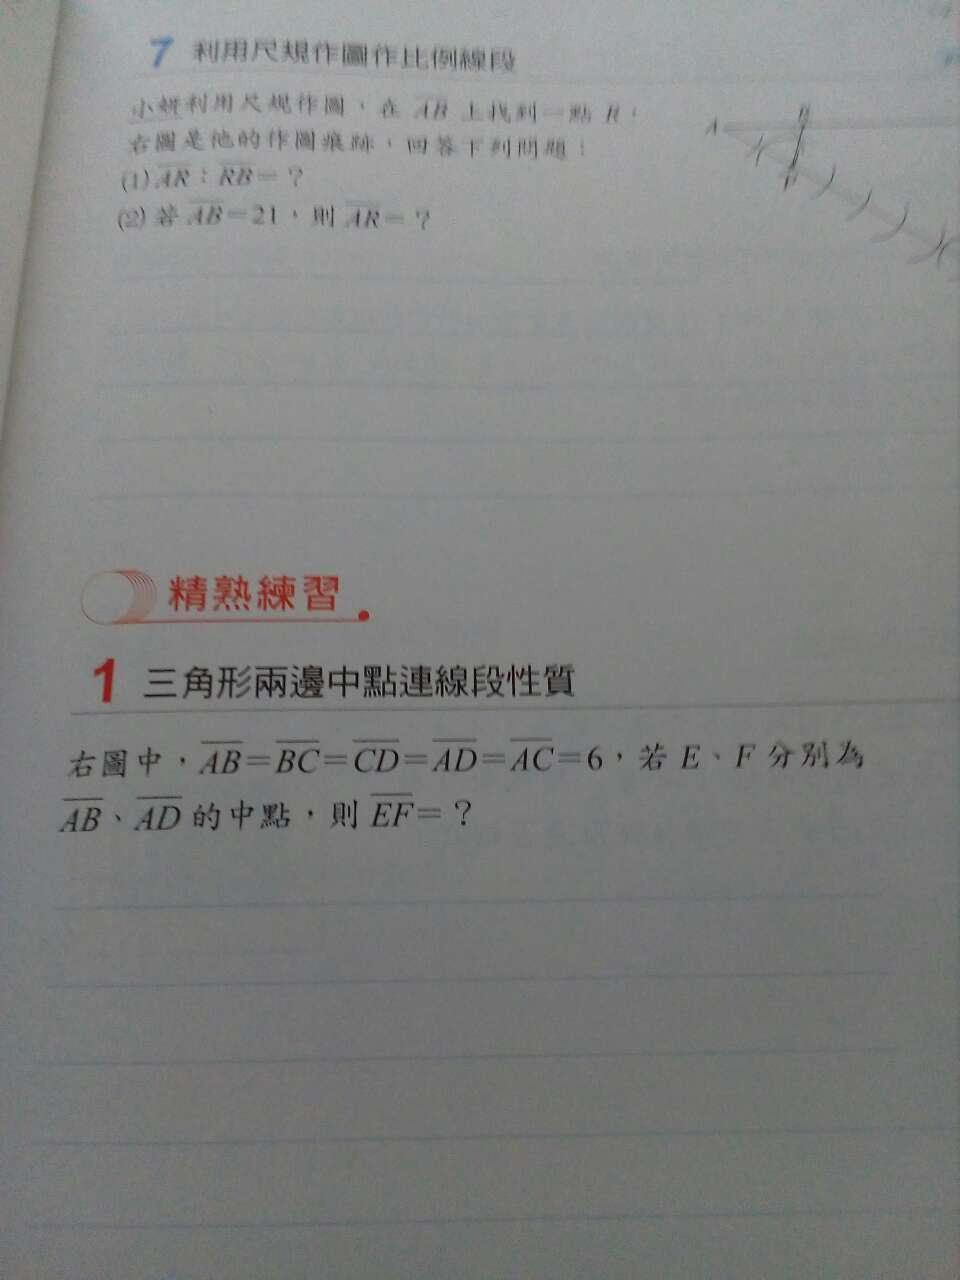 7 利用尺規作圖作比例線段
小妍利用尺規作圖，在 AB 上找到一點 R，
右圖是他的作圖痕跡，回答下列問題：
(1) AR：RB=？
(2) 若 AB=21，則 AR=？
A R
P
精熟練習
1 三角形兩邊中點連線段性質
右圖中，AB=BC=CD=AD=AC=6，若 E、F 分別為
AB、AD 的中點，則 EF=？